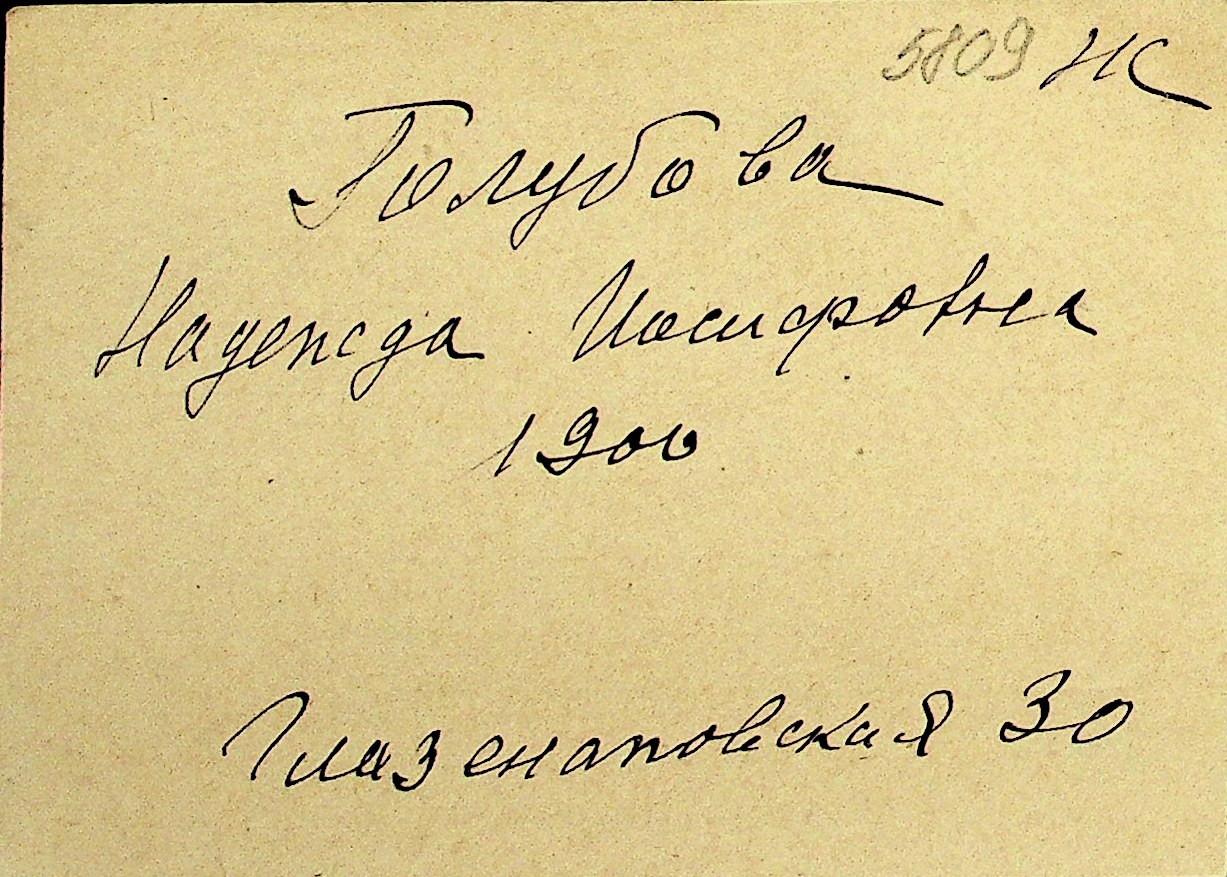 5809 НС
Голубова
Надежда Иосифовна
1900
Глазенаповская 30